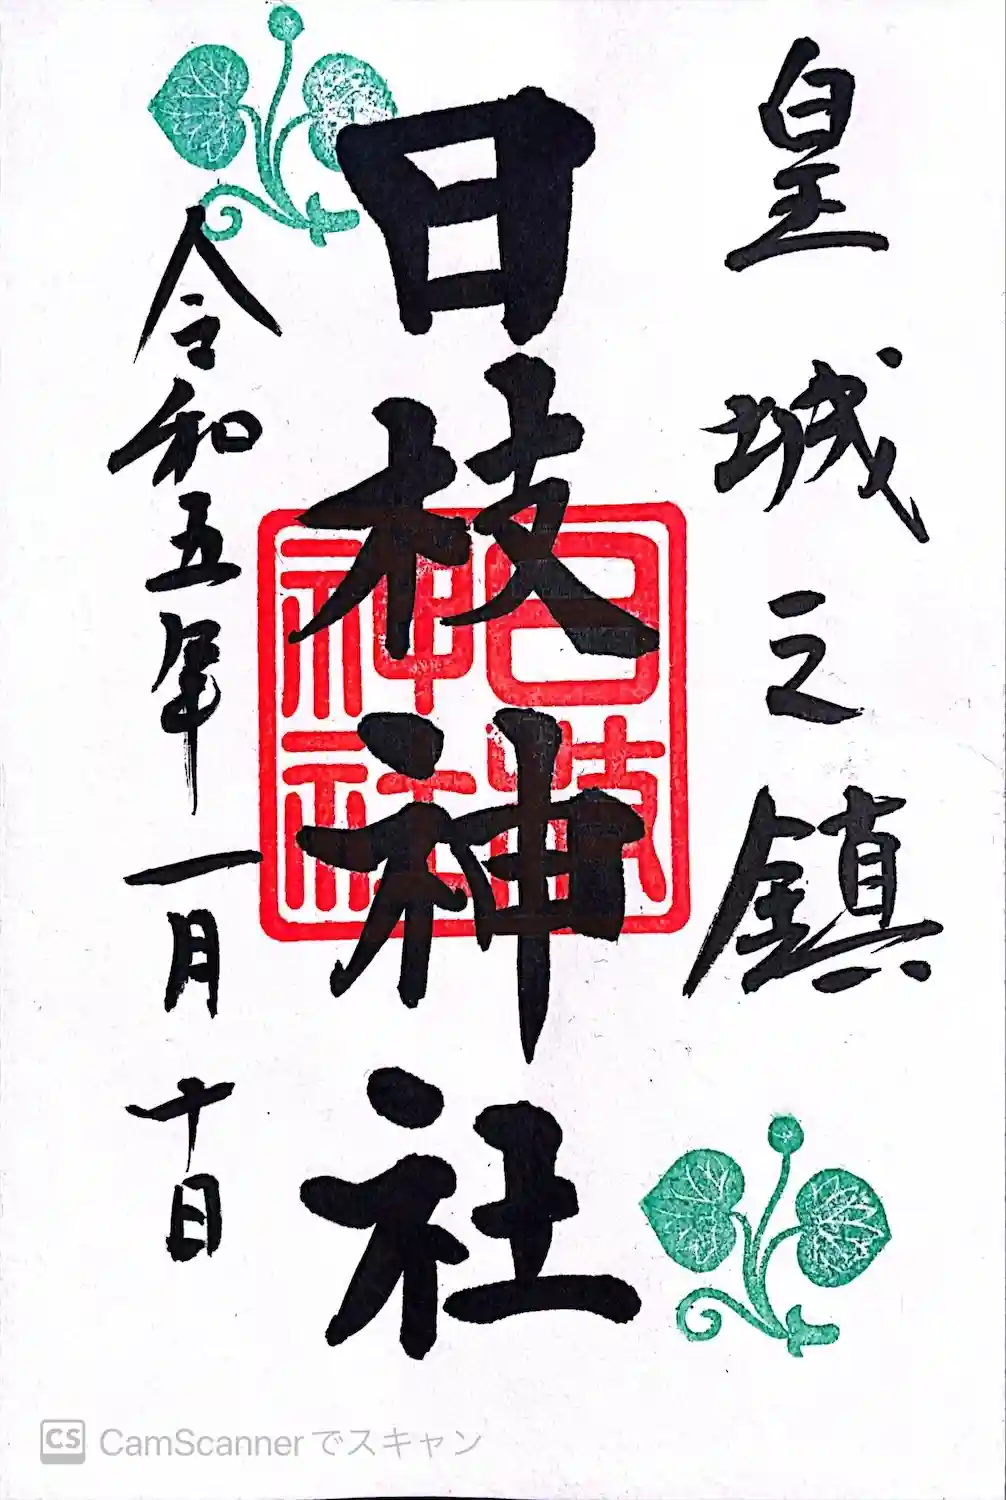 皇城之鎮
日枝神社
日枝
神社
令和五年一月十日
CS CamScannerでスキャン